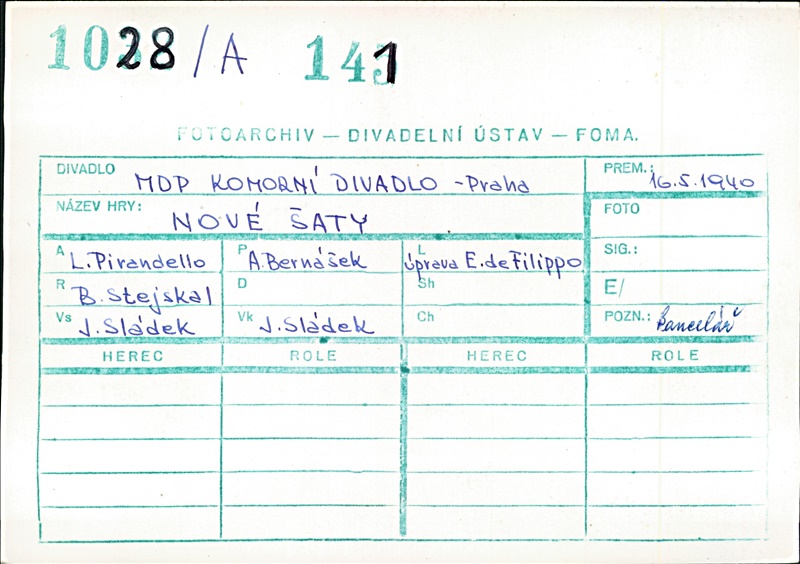 1028/A 141
FOTOARCHIV — DIVADELNÍ ÚSTAV — FOMA.
DIVADLO MDP KOMORNÍ DIVADLO - Praha PREM.: 16.5.1940
NÁZEV HRY: NOVÉ ŠATY FOTO
A L. Pirandello P A. Bernášek L úprava E. de Filippo SIG.:
R B. Stejskal D Sh E/
Vs J. Sládek Vk J. Sládek Ch POZN.: Kancelář
HEREC ROLE HEREC ROLE